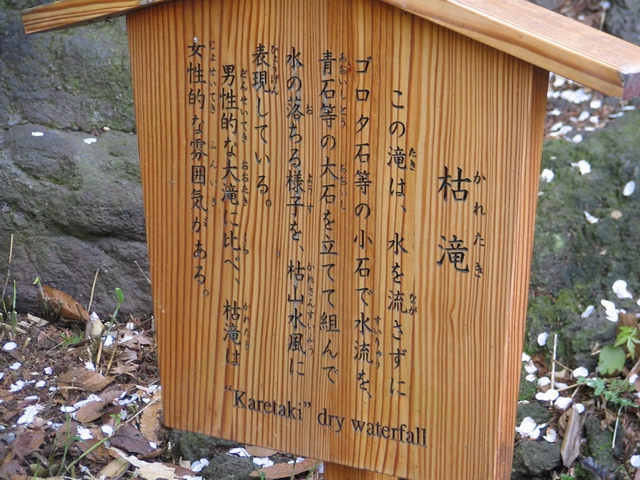 枯滝
この滝は、水を流さずに
ゴロタ石等の小石で水流を、
青石等の大石を立てて組んで
水の落ちる様子を、枯山水風に
表現している。
男性的な大滝に比べ、枯滝は
女性的な雰囲気がある。
"Karetaki" dry waterfall